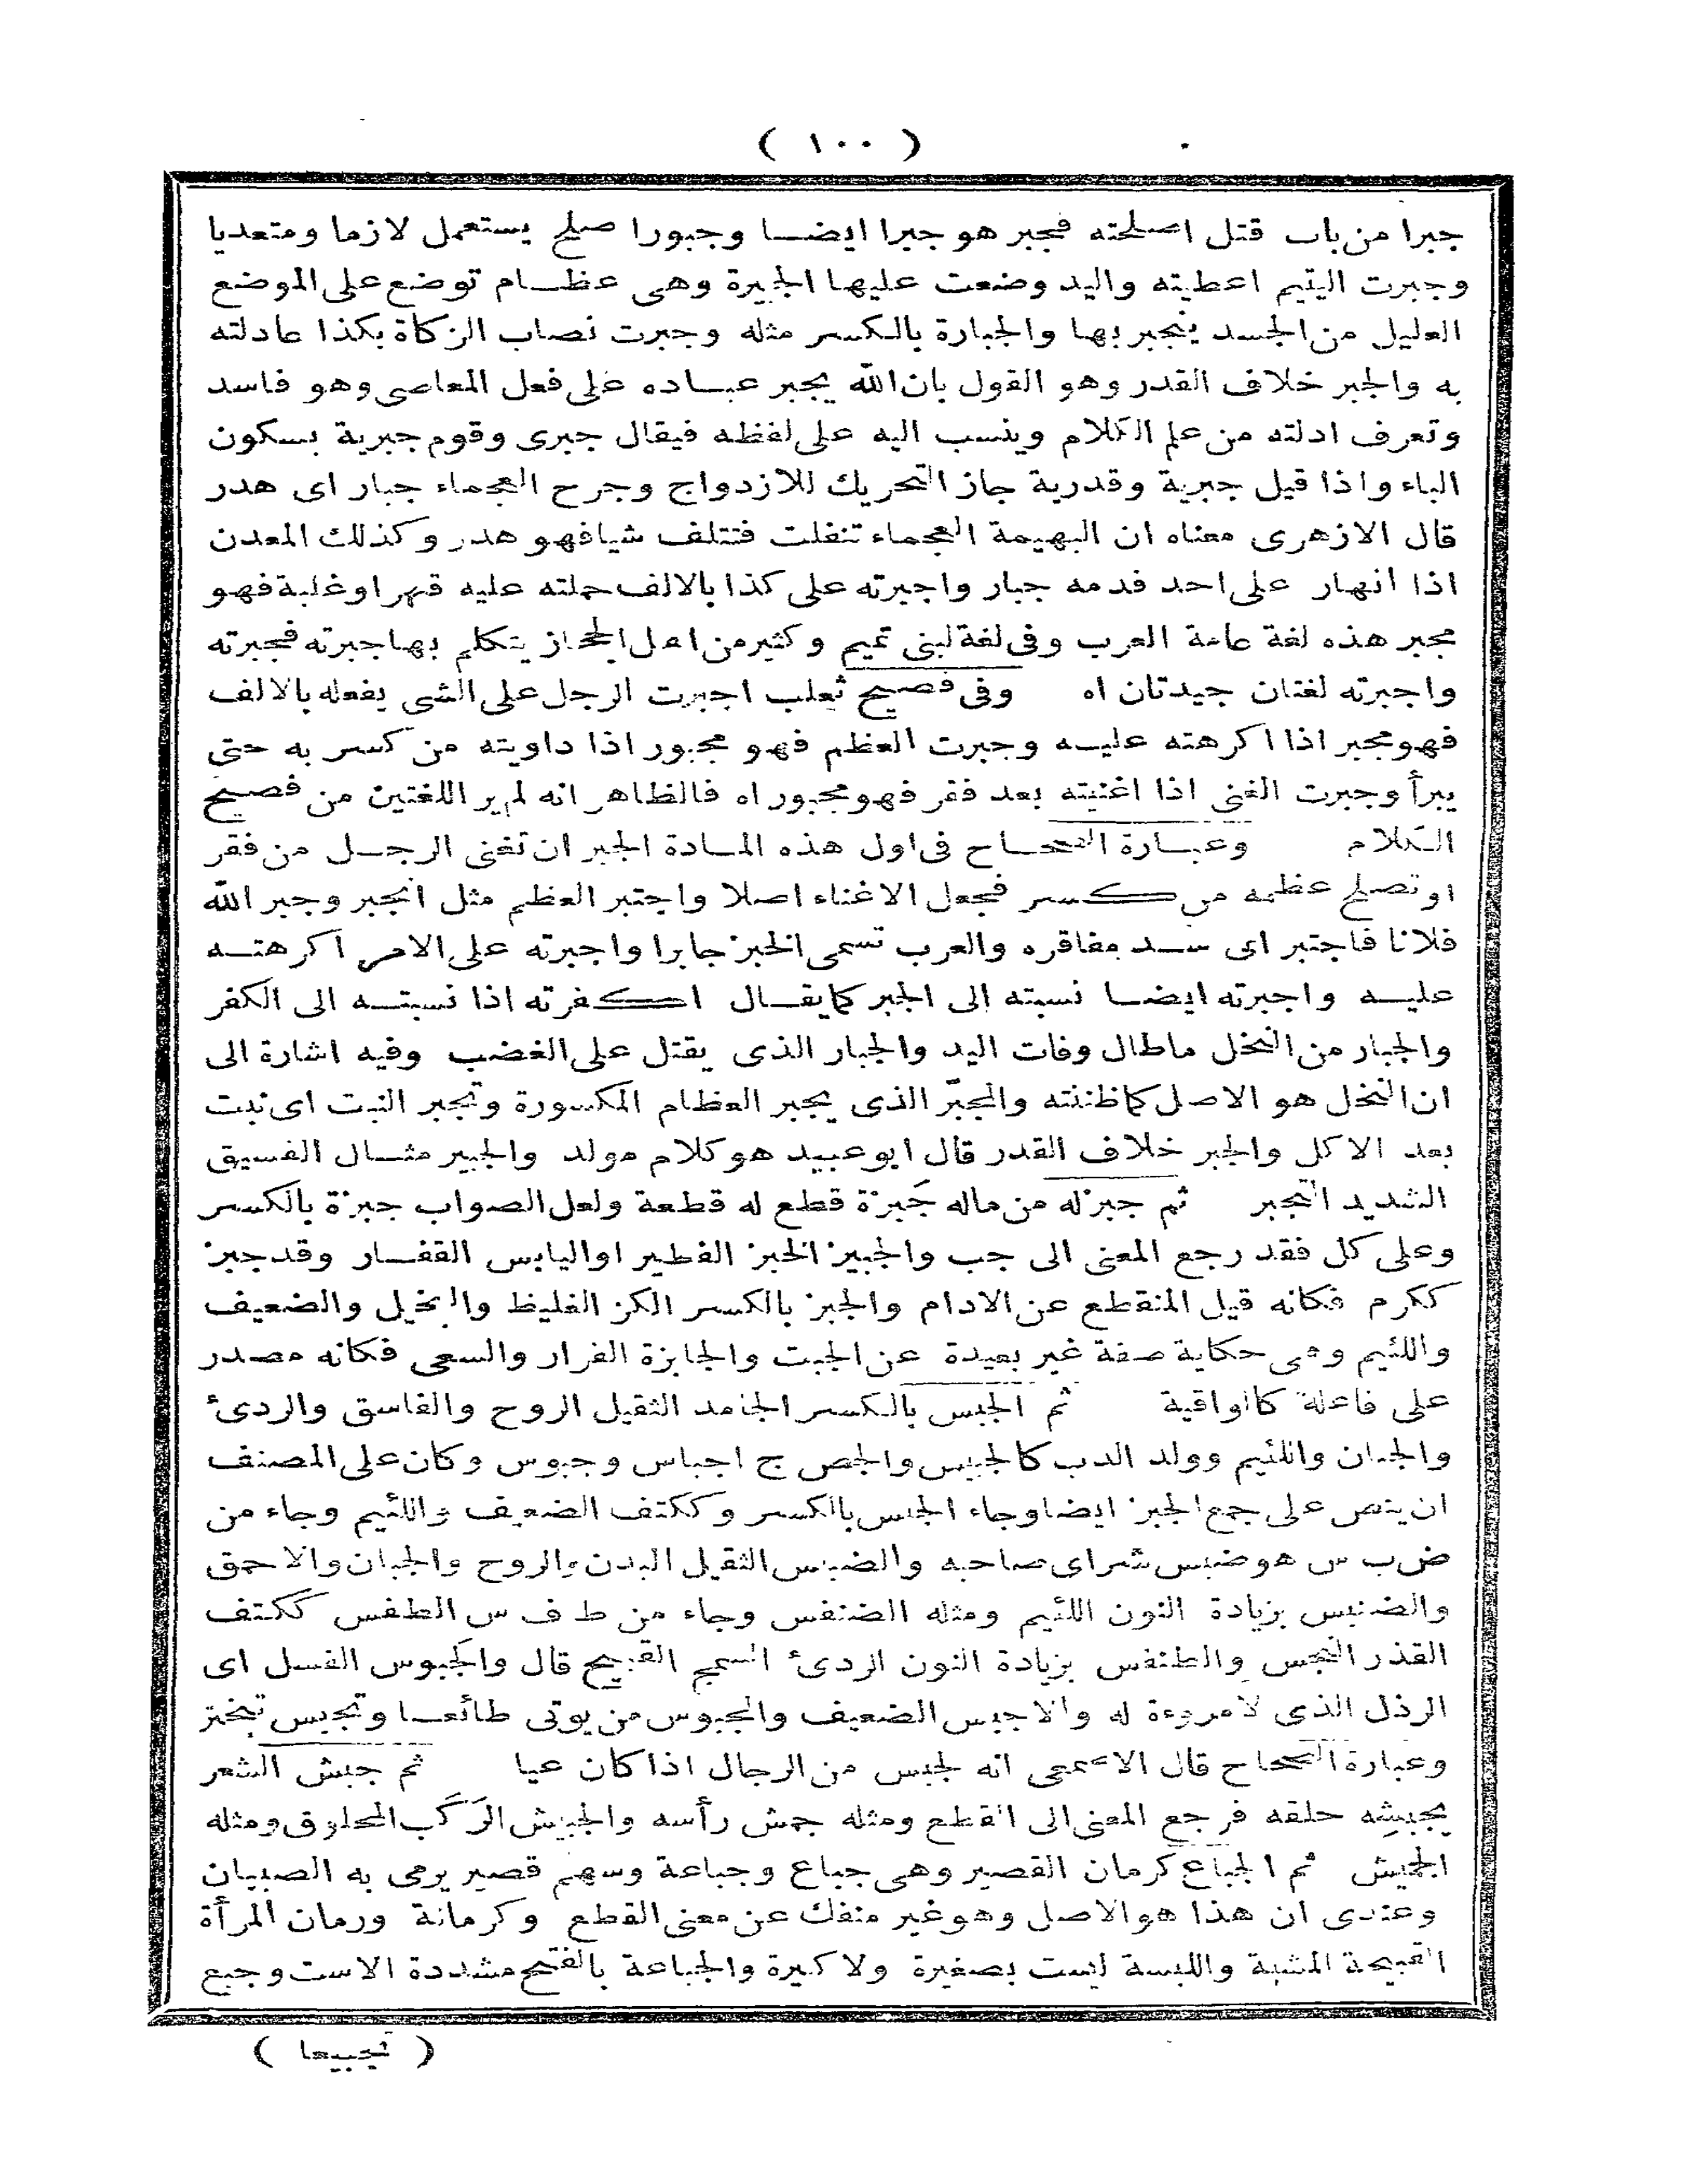 ( ١٠٠ )
جبرا من باب قتل اصلحته فجبر هو جبرا ايضا وجبورا صلح يستعمل لازما ومتعديا
وجبرت اليتيم اعطيته واليد وضعت عليها الجبيرة وهى عظام توضع على الموضع
العليل من الجسد ينجبر بها والجبارة بالكسر مثله وجبرت نصاب الزكاة بكذا عادلته
به والجبر خلاف القدر وهو القول بان الله يجبر عباده على فعل المعاصى وهو فاسد
وتعرف ادلته من علم الكلام وينسب اليه على لفظه فيقال جبرى وقوم جبرية بسكون
الباء واذا قيل جبرية وقدرية جاز التحريك للازدواج وجرح العجماء جبار اى هدر
قال الازهرى معناه ان البهيمة العجماء تنفلت فتتلف شيا فهو هدر وكذلك المعدن
اذا انهار على احد فدمه جبار واجبرته على كذا بالالف حملته عليه قهرا وغلبة فهو
مجبر هذه لغة عامة العرب وفى لغة لبنى تميم وكثير من اهل الحجاز يتكلم بها جبرته فجبرته
واجبرته لغتان جيدتان اه وفى فصيح ثعلب اجبرت الرجل على الشى يفعله بالالف
فهو مجبر اذا اكرهته عليه وجبرت العظم فهو مجبور اذا داويته من كسر به حتى
يبرأ وجبرت الغنى اذا اغنيته بعد فقر فهو مجبور اه فالظاهر انه لم ير اللغتين من فصيح
الكلام وعبارة الصحاح فى اول هذه المادة الجبر ان تغنى الرجل من فقر
او تصلح عظمه من كسر فجعل الاغناء اصلا واجتبر العظم مثل انجبر وجبر الله
فلانا فاجتبر اى سد مفاقره والعرب تسمى الخبز جابرا واجبرته على الامر اكرهته
عليه واجبرته ايضا نسبته الى الجبر كما يقال اكفرته اذا نسبته الى الكفر
والجبار من النخل ما طال وفات اليد والجبار الذى يقتل على الغضب وفيه اشارة الى
ان النخل هو الاصل كما ظننته والمجبّر الذى يجبر العظام المكسورة وتجبر النبت اى نبت
بعد الاكل والجبر خلاف القدر قال ابو عبيد هو كلام مولد والجبير مثال الفسيق
الشديد التجبر ثم جبز له من ماله جَبزة قطع له قطعة ولعل الصواب جبزة بالكسر
وعلى كل فقد رجع المعنى الى جب والجبيز الخبز الفطير او اليابس القفار وقد جبز
ككرم فكانه قيل المنقطع عن الادام والجبز بالكسر الكز الغليظ والبخيل والضعيف
واللئيم وهى حكاية صفة غير بعيدة عن الجبت والجابزة الفرار والسعى فكانه مصدر
على فاعلة كالواقية ثم الجبس بالكسر الجامد الثقيل الروح والفاسق والردئ
والجبان واللئيم وولد الدب كالجبيس والجص ج اجباس وجبوس وكان على المصنف
ان ينص على جمع الجبز ايضا وجاء الجنس بالكسر وككتف الضعيف واللئيم وجاء من
ض ب س هو ضبس شر اى صاحبه والضبس الثقيل البدن والروح والجبان والاحمق
والضنبس بزيادة النون اللئيم ومثله الضنفس وجاء من ط ف س الطفس ككتف
القذر النجس والطنفس بزيادة النون الردئ السمج القبيح قال والجبوس الفسل اى
الرذل الذى لا مروءة له والاجبس الضعيف والمجبوس من يوتى طائعا وتجبس تبختر
وعبارة الصحاح قال الاصمعى انه لجبس من الرجال اذا كان عيا ثم جبش الشعر
يجبشِه حلقه فرجع المعنى الى القطع ومثله جمش رأسه والجبيش الرَكَب المحلوق ومثله
الجميش ثم الجباع كرمان القصير وهى جباع وجباعة وسهم قصير يرمى به الصبيان
وعندى ان هذا هو الاصل وهو غير منفك عن معنى القطع وكرمانة ورمان المرأة
القبيحة المشية واللبسة ليست بصغيرة ولا كبيرة والجباعة بالفتح مشددة الاست وجبع
( تجبيعا )